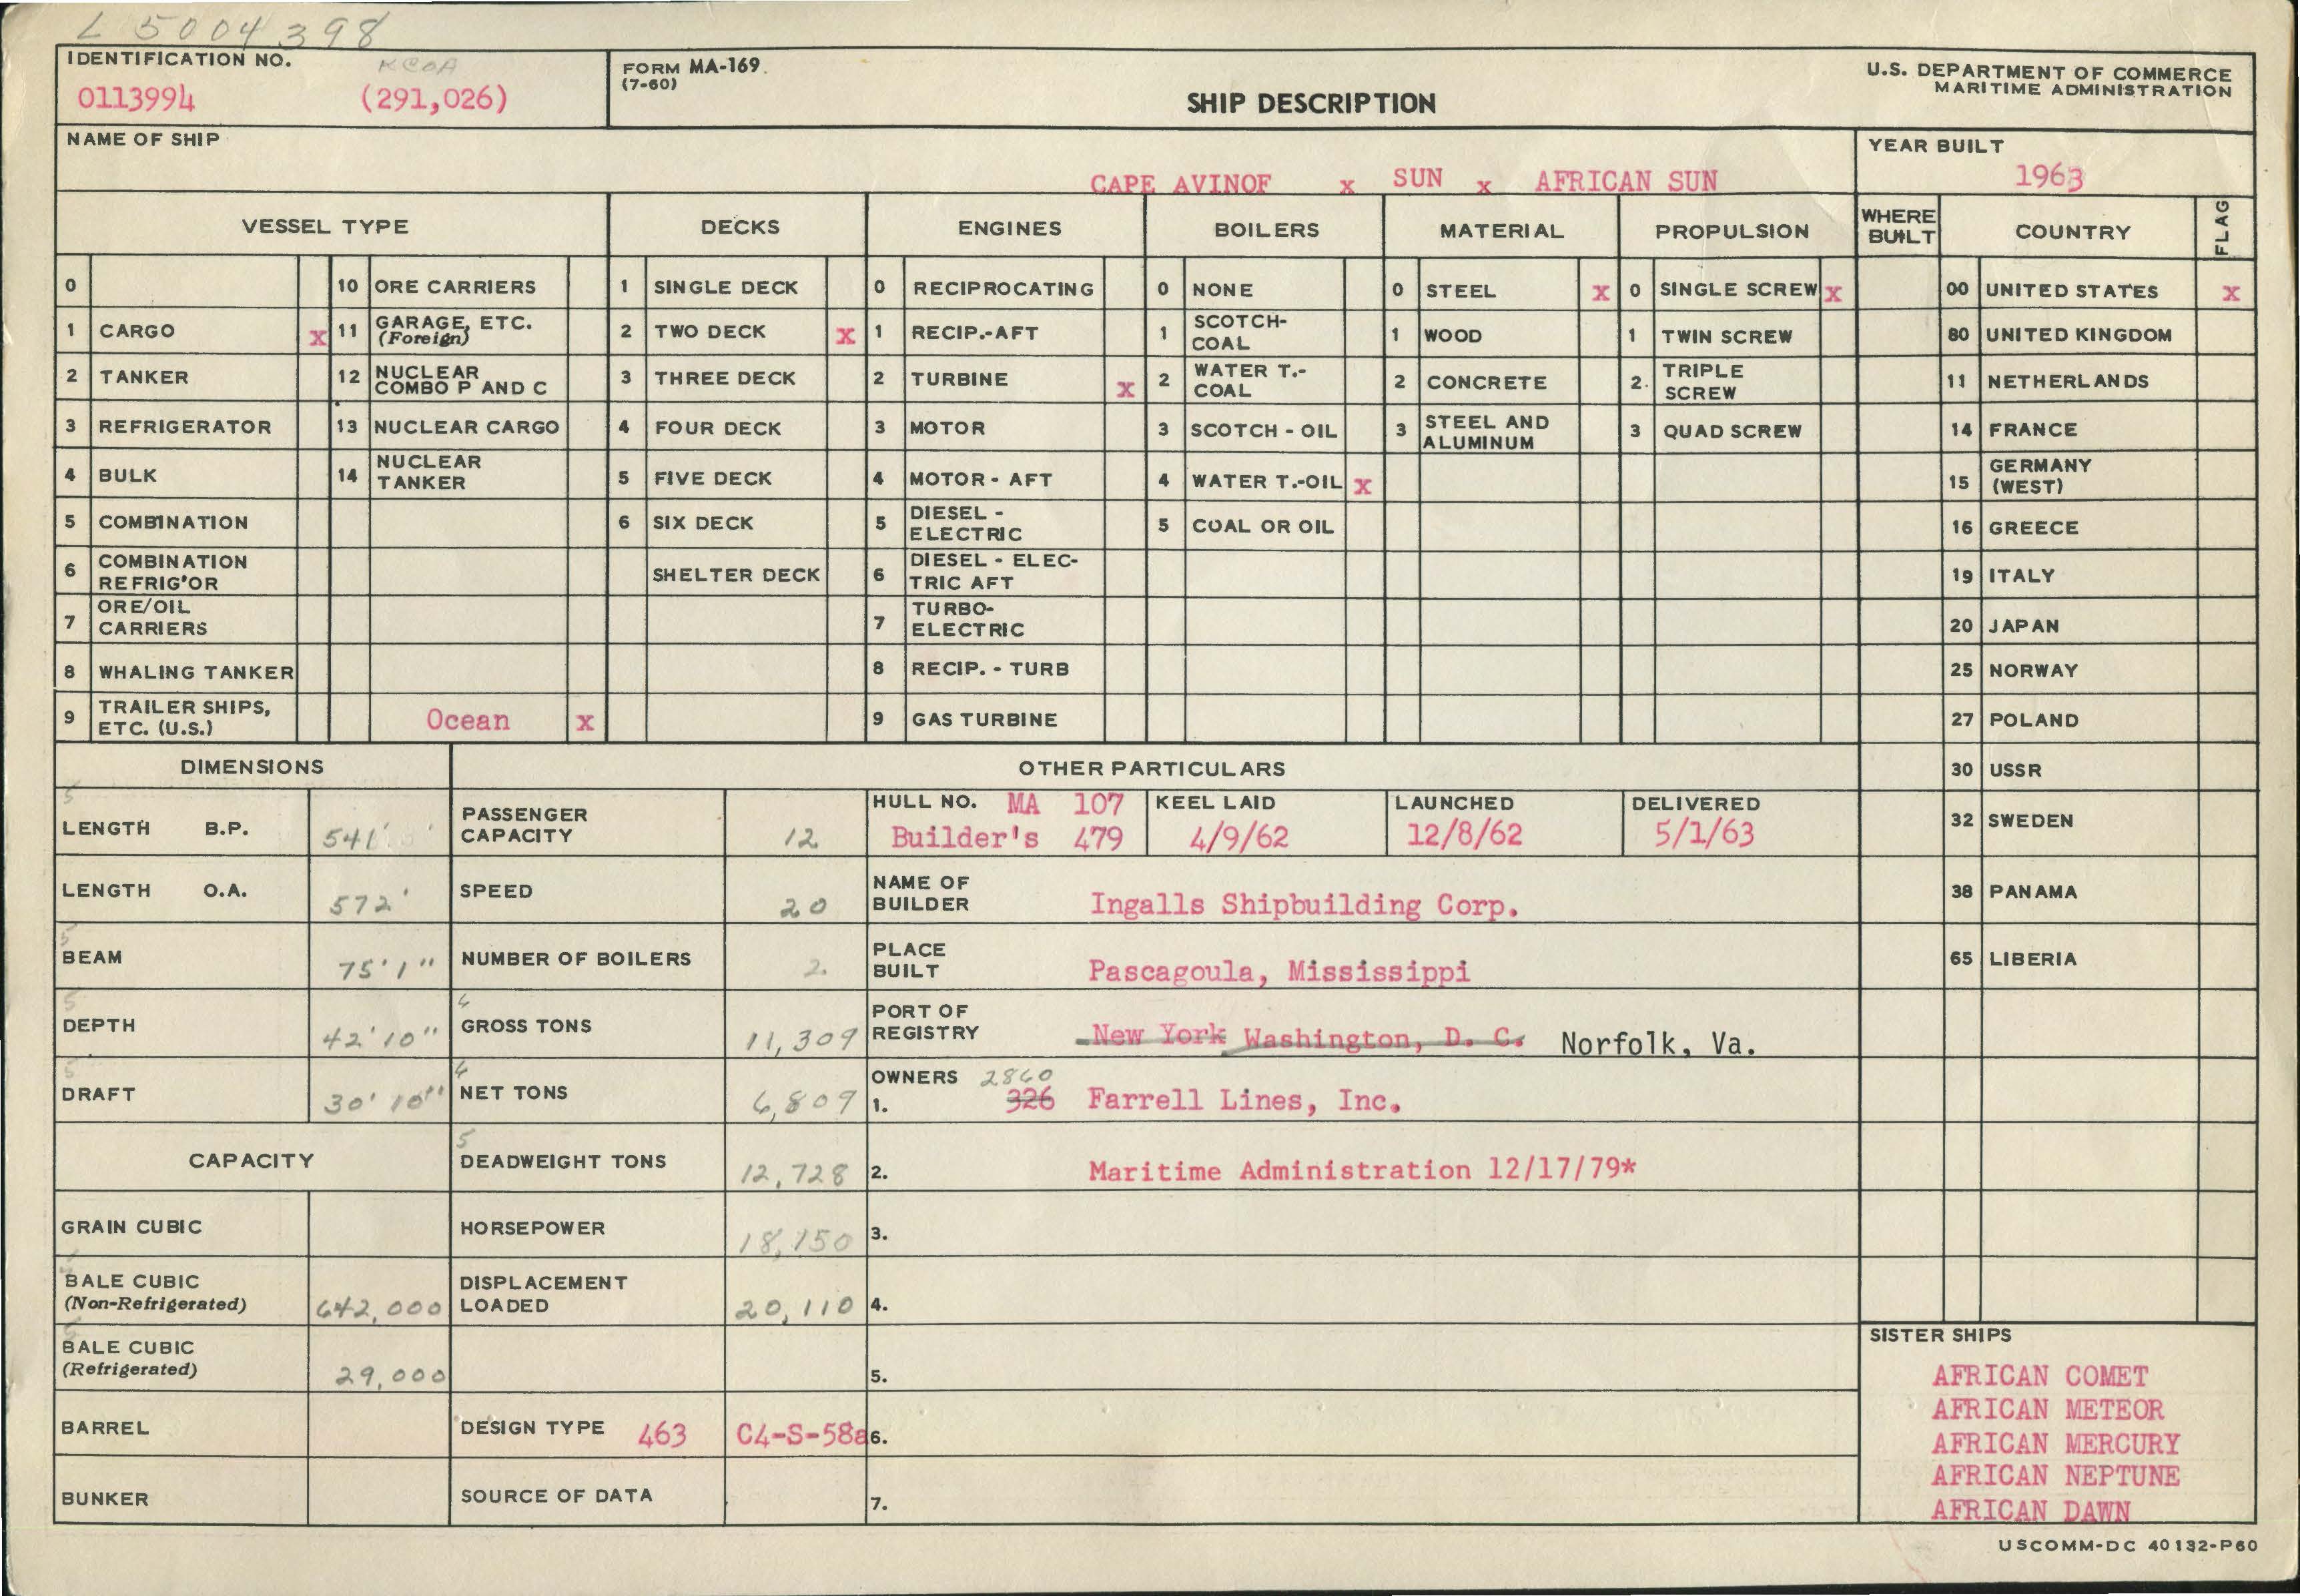 L 5004398
IDENTIFICATION NO. KCOA
0113994 (291,026)
FORM MA-169
(7-60)
SHIP DESCRIPTION
U.S. DEPARTMENT OF COMMERCE
MARITIME ADMINISTRATION
NAME OF SHIP
CAPE AVINOF x SUN x AFRICAN SUN
YEAR BUILT
1963
VESSEL TYPE DECKS ENGINES BOILERS MATERIAL PROPULSION WHERE BUILT COUNTRY FLAG
0 10 ORE CARRIERS 1 SINGLE DECK 0 RECIPROCATING 0 NONE 0 STEEL x 0 SINGLE SCREW x 00 UNITED STATES x
1 CARGO x 11 GARAGE, ETC. (Foreign) 2 TWO DECK x 1 RECIP.-AFT 1 SCOTCH-COAL 1 WOOD 1 TWIN SCREW 80 UNITED KINGDOM
2 TANKER 12 NUCLEAR COMBO P AND C 3 THREE DECK 2 TURBINE x 2 WATER T.-COAL 2 CONCRETE 2. TRIPLE SCREW 11 NETHERLANDS
3 REFRIGERATOR 13 NUCLEAR CARGO 4 FOUR DECK 3 MOTOR 3 SCOTCH - OIL 3 STEEL AND ALUMINUM 3 QUAD SCREW 14 FRANCE
4 BULK 14 NUCLEAR TANKER 5 FIVE DECK 4 MOTOR - AFT 4 WATER T.-OIL x 15 GERMANY (WEST)
5 COMBINATION 6 SIX DECK 5 DIESEL - ELECTRIC 5 COAL OR OIL 16 GREECE
6 COMBINATION REFRIG'OR SHELTER DECK 6 DIESEL - ELEC-TRIC AFT 19 ITALY
7 ORE/OIL CARRIERS 7 TURBO-ELECTRIC 20 JAPAN
8 WHALING TANKER 8 RECIP. - TURB 25 NORWAY
9 TRAILER SHIPS, ETC. (U.S.) Ocean x 9 GAS TURBINE 27 POLAND
DIMENSIONS OTHER PARTICULARS 30 USSR
5
LENGTH B.P. 541' PASSENGER CAPACITY 12 HULL NO. MA 107 Builder's 479 KEEL LAID 4/9/62 LAUNCHED 12/8/62 DELIVERED 5/1/63 32 SWEDEN
LENGTH O.A. 572' SPEED 20 NAME OF BUILDER Ingalls Shipbuilding Corp. 38 PANAMA
5
BEAM 75'1" NUMBER OF BOILERS 2. PLACE BUILT Pascagoula, Mississippi 65 LIBERIA
5 4
DEPTH 42'10" GROSS TONS 11,309 PORT OF REGISTRY New York Washington, D. C. Norfolk, Va.
5 4
DRAFT 30'10" NET TONS 6,809 OWNERS 2860 1. 326 Farrell Lines, Inc.
5
CAPACITY DEADWEIGHT TONS 12,728 2. Maritime Administration 12/17/79*
GRAIN CUBIC HORSEPOWER 18,150 3.
BALE CUBIC (Non-Refrigerated) 642,000 DISPLACEMENT LOADED 20,110 4.
5
BALE CUBIC (Refrigerated) 29,000 5.
BARREL DESIGN TYPE 463 C4-S-58a 6.
BUNKER SOURCE OF DATA 7.
SISTER SHIPS
AFRICAN COMET
AFRICAN METEOR
AFRICAN MERCURY
AFRICAN NEPTUNE
AFRICAN DAWN
USCOMM-DC 40132-P60